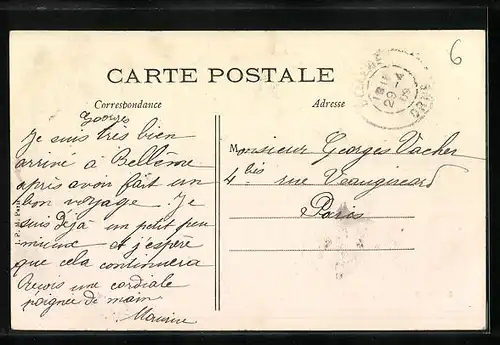 6
CARTE POSTALE
Correspondance
Adresse
Georges
Je suis très bien
arrivé à Bellême
après avoir fait un
bon voyage. Je
suis déjà un petit peu
mieux et j'espère
que cela continuera
Reçois une cordiale
poignée de main
Maurice
Monsieur Georges Vacher
4 bis rue
Paris
29 - 4
ORNE